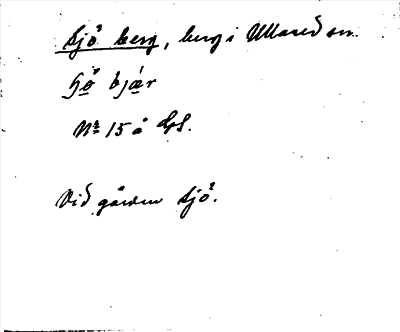 Sjö berg, berg i Ullared sn.
hö bjær
Nr 15 å GS.
Vid gården Sjö.